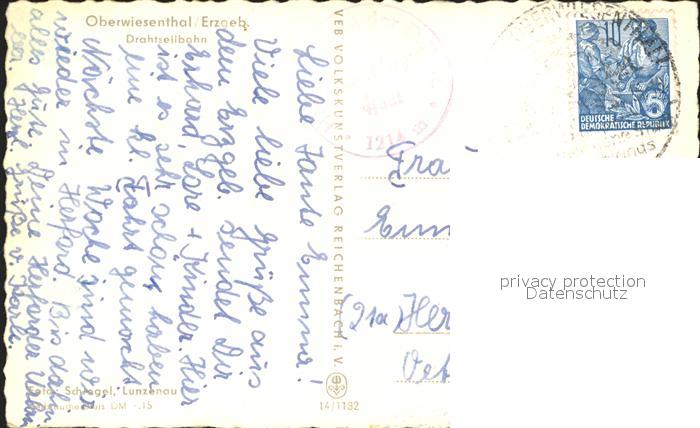 Oberwiesenthal / Erzgeb.
Drahtseilbahn
Liebe Tante Emma!
Viele liebe Grüße aus
dem Erzgeb. sendet Dir
Erhard, Lore + Kinder. Hier
ist es sehr schön, haben
eine kl. Fahrt gemacht
Nächste Woche sind wir
wieder in Herford. Bis dahin
alles Gute. Deine Herforder
Herzl. Grüße v.
Foto: Schlegel, Lunzenau
DM -.15
VEB VOLKSKUNSTVERLAG REICHENBACH i. V.
14/1192
1214
10
DEUTSCHE
DEMOKRATISCHE REPUBLIK
OBERWIESENTHAL
Fra
Emm
(21a) Her
privacy protection
Datenschutz